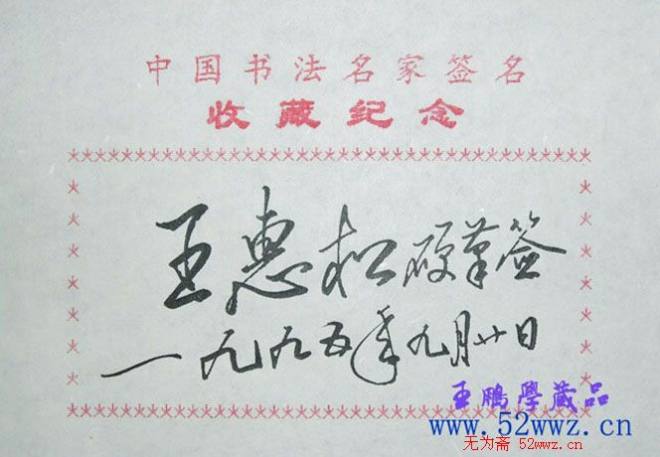 中国书法名家签名
收藏纪念
王惠松硬笔签
一九九五年九月廿日
王鹏學藏品
www.52wwz.cn
无为斋 52wwz.cn